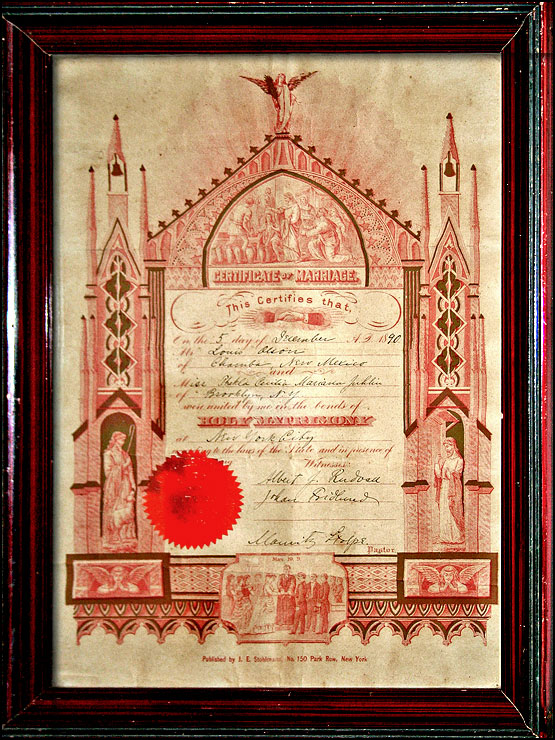 CERTIFICATE OF MARRIAGE.
This Certifies that,
On the 5 day of December A.D. 1890
Mr Louis Olson
of Chama New Mexico
and
Miss Cecilia Mariana
of Brooklyn, N.Y.
were united by me in the bonds of
HOLY MATRIMONY
at New York City
to the laws of the State and in presence of
Witnesses
Albert J. Rudvall
Johan Fridlund
Mauritz Stolpe
Pastor.
Published by J. E. Stohlmann, No. 150 Park Row, New York